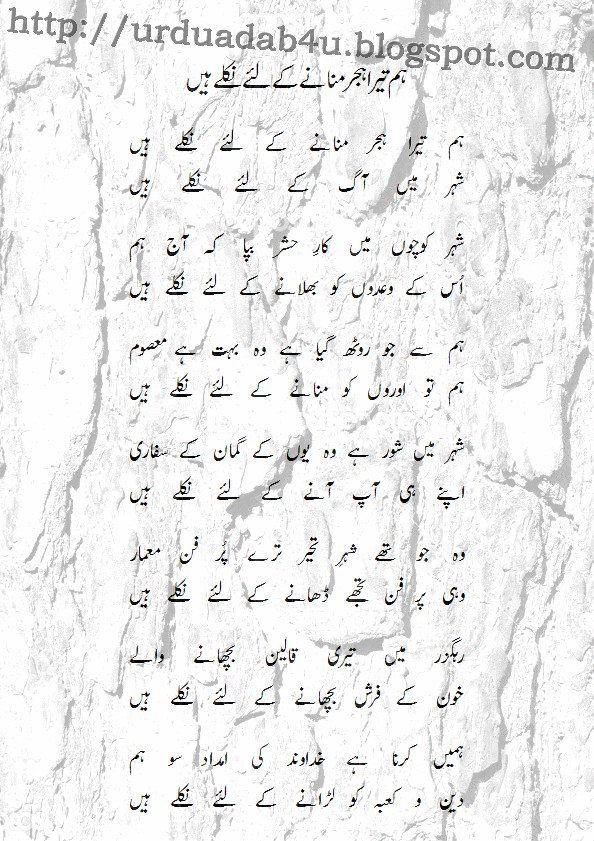 http://urduadab4u.blogspot.com
ہم تیرا ہجر منانے کے لئے نکلے ہیں
ہم تیرا ہجر منانے کے لئے نکلے ہیں
شہر میں آگ کے لئے نکلے ہیں
شہر کوچوں میں کارِ حشر بپا کہ آج ہم
اُس کے وعدوں کو بھلانے کے لئے نکلے ہیں
ہم سے جو روٹھ گیا ہے وہ بہت ہے معصوم
ہم تو اوروں کو منانے کے لئے نکلے ہیں
شہر میں شور ہے وہ یوں کے گمان کے سفاری
اپنے ہی آپ آنے کے لئے نکلے ہیں
وہ جو تھے شہرِ تحیر ترے پُر فن معمار
وہی پر فن تجھے ڈھانے کے لئے نکلے ہیں
رہگزر میں تیری قالین بچھانے والے
خون کے فرش بچھانے کے لئے نکلے ہیں
ہمیں کرنا ہے خداوند کی امداد سو ہم
دین و کعبہ کو لڑانے کے لئے نکلے ہیں